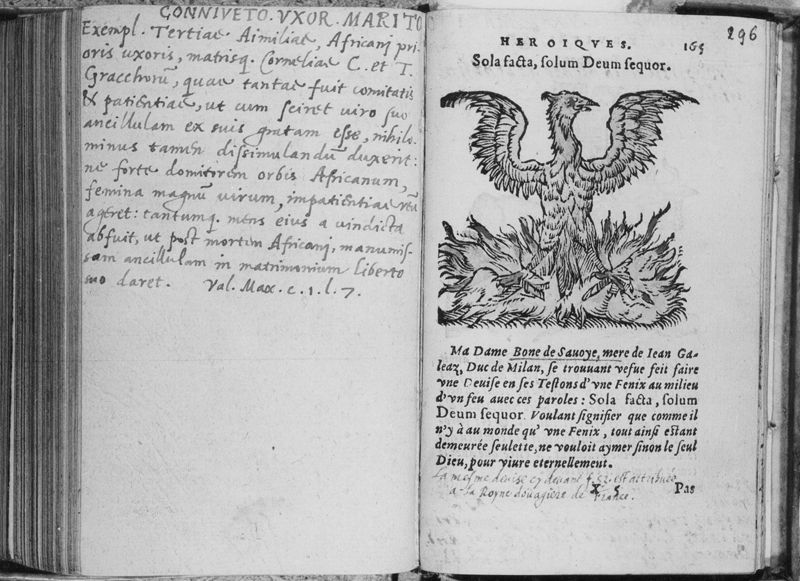 CONNIVETO. VXOR. MARITO
Exempl. Tertiae Aimiliae, Africanj pri-
oris uxoris, matrisq. Corneliae C. et T.
Gracchorũ, quae tantae fuit comitatis
& patientiae, ut cum sciret viro suo
ancillulam ex suis gratam esse, nihilo-
minus tamen dissimulandũ duxerit:
ne forte domitorem orbis Africanum,
femina magnũ virum, impatientiae reũ
ageret: tantumq. mens eius a vindicta
abfuit, ut post mortem Africanj, manumis-
sam ancillulam in matrimonium liberto
suo daret. Val. Max. c. 1. l. 7.
HEROIQVES. 165 296
Sola facta, ſolum Deum ſequor.
Ma Dame Bone de Sauoye, mere de Iean Ga-
leaz, Duc de Milan, ſe trouuant vefue feit faire
vne Deuiſe en ſes Teſtons d'vne Fenix au milieu
d'vn feu auec ces paroles: Sola facta, ſolum
Deum ſequor. Voulant ſignifier que comme il
n'y à au monde qu' vne Fenix, tout ainſi eſtant
demeurée ſeulette, ne vouloit aymer ſinon le ſeul
Dieu, pour viure eternellement.
La mesme devise cy devant f. 52. est attribuée
a la Royne douagiere de France.
X 5 Pas